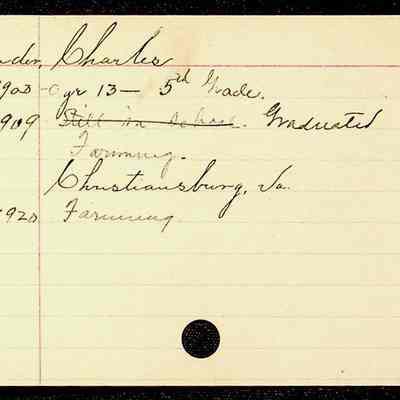 nder, Charles
1903 - Cyr 13 — 5th Grade.
1909 Still in School. Graduated
Farming.
Christiansburg, Va.
1920 Farming